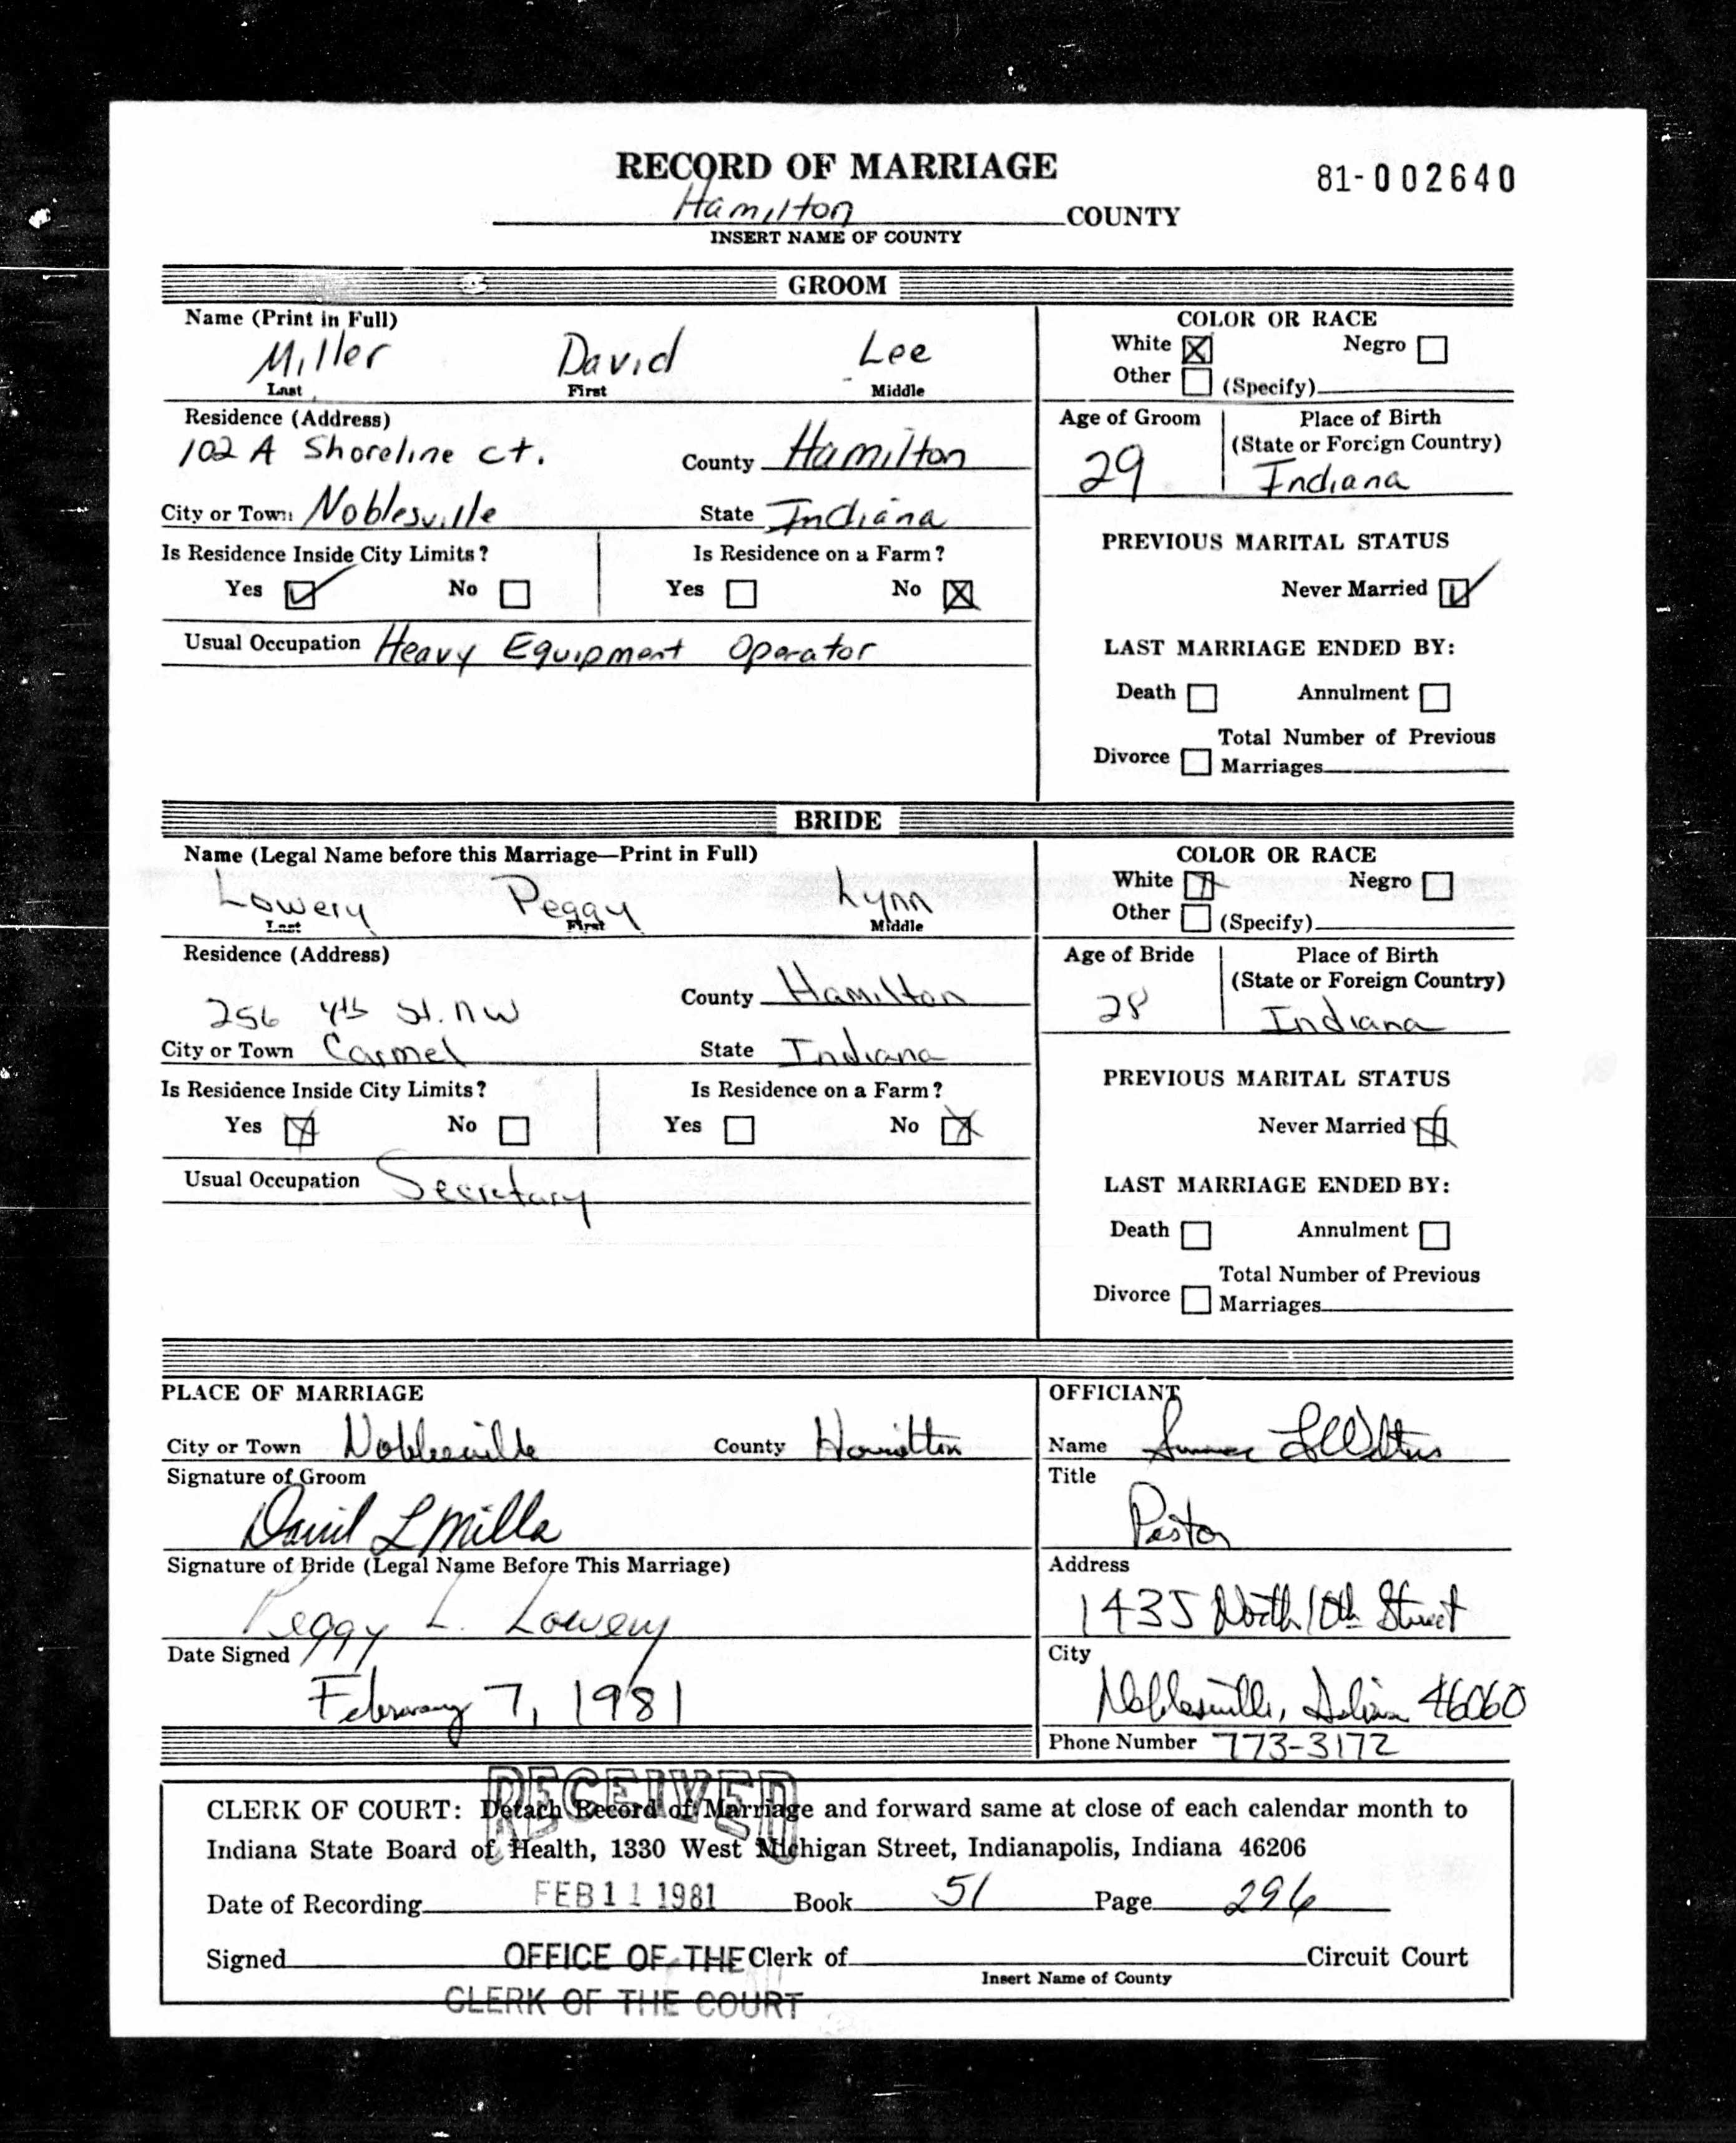 RECORD OF MARRIAGE
81-002640
Hamilton COUNTY
INSERT NAME OF COUNTY
GROOM
Name (Print in Full)
Miller David Lee
Last First Middle
COLOR OR RACE
White ☒ Negro ☐
Other ☐ (Specify)
Residence (Address)
102 A Shoreline ct. County Hamilton
City or Town Noblesville State Indiana
Age of Groom
29
Place of Birth
(State or Foreign Country)
Indiana
Is Residence Inside City Limits? Is Residence on a Farm?
Yes ☑ No ☐ Yes ☐ No ☒
Usual Occupation Heavy Equipment Operator
PREVIOUS MARITAL STATUS
Never Married ☑
LAST MARRIAGE ENDED BY:
Death ☐ Annulment ☐
Divorce ☐ Total Number of Previous
Marriages
BRIDE
Name (Legal Name before this Marriage—Print in Full)
Lowery Peggy Lynn
Last First Middle
COLOR OR RACE
White ☒ Negro ☐
Other ☐ (Specify)
Residence (Address)
256 4th St. NW County Hamilton
City or Town Carmel State Indiana
Age of Bride
28
Place of Birth
(State or Foreign Country)
Indiana
Is Residence Inside City Limits? Is Residence on a Farm?
Yes ☒ No ☐ Yes ☐ No ☒
Usual Occupation Secretary
PREVIOUS MARITAL STATUS
Never Married ☒
LAST MARRIAGE ENDED BY:
Death ☐ Annulment ☐
Divorce ☐ Total Number of Previous
Marriages
PLACE OF MARRIAGE
City or Town Noblesville County Hamilton
Signature of Groom
David L Miller
Signature of Bride (Legal Name Before This Marriage)
Peggy L. Lowery
Date Signed
February 7, 1981
OFFICIANT
Name
Title
Pastor
Address
1435 North 10th Street
City
Noblesville, Indiana 46060
Phone Number 773-3172
RECEIVED
CLERK OF COURT: Detach Record of Marriage and forward same at close of each calendar month to
Indiana State Board of Health, 1330 West Michigan Street, Indianapolis, Indiana 46206
Date of Recording FEB 11 1981 Book 51 Page 296
Signed OFFICE OF THE Clerk of Circuit Court
Insert Name of County
CLERK OF THE COURT